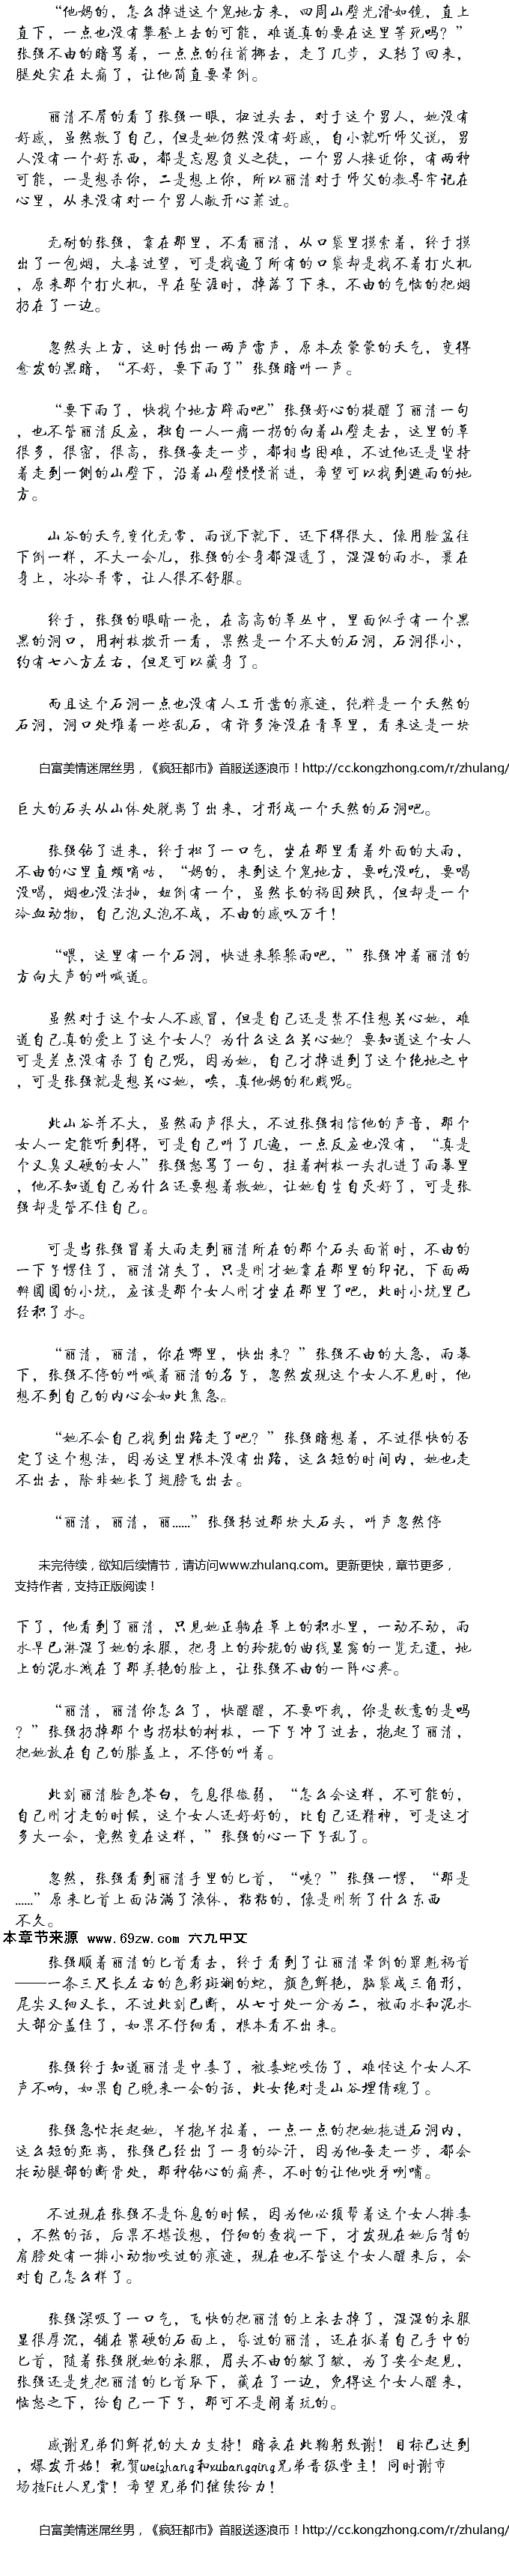 “他妈的，怎么掉进这个鬼地方来，四周山壁光滑如镜，直上
直下，一点也没有攀登上去的可能，难道真的要在这里等死吗？”
张强不由的暗骂着，一点点的往前挪去，走了几步，又转了回来，
腿处实在太痛了，让他简直要晕倒。
丽清不屑的看了张强一眼，扭过头去，对于这个男人，她没有
好感，虽然救了自己，但是她仍然没有好感，自小就听师父说，男
人没有一个好东西，都是忘恩负义之徒，一个男人接近你，有两种
可能，一是想杀你，二是想上你，所以丽清对于师父的教导牢记在
心里，从来没有对一个男人敞开心菲过。
无耐的张强，靠在那里，不看丽清，从口袋里摸索着，终于摸
出了一包烟，大喜过望，可是找遍了所有的口袋却是找不着打火机
，原来那个打火机，早在坠涯时，掉落了下来，不由的气恼的把烟
扔在了一边。
忽然头上方，这时传出一两声雷声，原本灰蒙蒙的天气，变得
愈发的黑暗，“不好，要下雨了”张强暗叫一声。
“要下雨了，快找个地方辟雨吧”张强好心的提醒了丽清一句
，也不管丽清反应，独自一人一瘸一拐的向着山壁走去，这里的草
很多，很密，很高，张强每走一步，都相当困难，不过他还是坚持
着走到一侧的山壁下，沿着山壁慢慢前进，希望可以找到避雨的地
方。
山谷的天气变化无常，雨说下就下，还下得很大，像用脸盆往
下倒一样，不大一会儿，张强的全身都湿透了，湿湿的雨水，裹在
身上，冰冷异常，让人很不舒服。
终于，张强的眼睛一亮，在高高的草丛中，里面似乎有一个黑
黑的洞口，用树枝拨开一看，果然是一个不大的石洞，石洞很小，
约有七八方左右，但足可以藏身了。
而且这个石洞一点也没有人工开凿的痕迹，纯粹是一个天然的
石洞，洞口处堆着一些乱石，有许多淹没在青草里，看来这是一块
白富美情迷屌丝男，《疯狂都市》首服送逐浪币！http://cc.kongzhong.com/r/zhulang/
巨大的石头从山体处脱离了出来，才形成一个天然的石洞吧。
张强钻了进来，终于松了一口气，坐在那里看着外面的大雨，
不由的心里直烦嘀咕，“妈的，来到这个鬼地方，要吃没吃，要喝
没喝，烟也没法抽，妞倒有一个，虽然长的祸国殃民，但却是一个
冷血动物，自己泡又泡不成，不由的感叹万千！
“喂，这里有一个石洞，快进来躲躲雨吧，”张强冲着丽清的
方向大声的叫喊道。
虽然对于这个女人不感冒，但是自己还是禁不住想关心她，难
道自己真的爱上了这个女人？为什么这么关心她？要知道这个女人
可是差点没有杀了自己呢，因为她，自己才掉进到了这个绝地之中
，可是张强就是想关心她，唉，真他妈的犯贱呢。
此山谷并不大，虽然雨声很大，不过张强相信他的声音，那个
女人一定能听到得，可是自己叫了几遍，一点反应也没有，“真是
个又臭又硬的女人”张强怒骂了一句，拄着树枝一头扎进了雨幕里
，他不知道自己为什么还要想着救她，让她自生自灭好了，可是张
强却是管不住自己。
可是当张强冒着大雨走到丽清所在的那个石头面前时，不由的
一下子愣住了，丽清消失了，只是刚才她靠在那里的印记，下面两
瓣圆圆的小坑，应该是那个女人刚才坐在那里了吧，此时小坑里已
经积了水。
“丽清，丽清，你在哪里，快出来？”张强不由的大急，雨幕
下，张强不停的叫喊着丽清的名子，忽然发现这个女人不见时，他
想不到自己的内心会如此焦急。
“她不会自己找到出路走了吧？”张强暗想着，不过很快的否
定了这个想法，因为这里根本没有出路，这么短的时间内，她也走
不出去，除非她长了翅膀飞出去。
“丽清，丽清，丽……”张强转过那块大石头，叫声忽然停
未完待续，欲知后续情节，请访问www.zhulang.com。更新更快，章节更多，
支持作者，支持正版阅读！
下了，他看到了丽清，只见她正躺在草上的积水里，一动不动，雨
水早已淋湿了她的衣服，把身上的玲珑的曲线显露的一览无遗，地
上的泥水溅在了那美艳的脸上，让张强不由的一阵心疼。
“丽清，丽清你怎么了，快醒醒，不要吓我，你是故意的是吗
？”张强扔掉那个当拐杖的树枝，一下子冲了过去，抱起了丽清，
把她放在自己的膝盖上，不停的叫着。
此刻丽清脸色苍白，气息很微弱，“怎么会这样，不可能的，
自己刚才走的时候，这个女人还好好的，比自己还精神，可是这才
多大一会，竟然变在这样，”张强的心一下子乱了。
忽然，张强看到丽清手里的匕首，“咦？”张强一愣，“那是
……”原来匕首上面沾满了液体，粘粘的，像是刚斩了什么东西
不久。
本章节来源 www.69zw.com 六九中文
张强顺着丽清的匕首看去，终于看到了让丽清晕倒的罪魁祸首
——一条三尺长左右的色彩斑斓的蛇，颜色鲜艳，脑袋成三角形，
尾尖又细又长，不过此刻已断，从七寸处一分为二，被雨水和泥水
大部分盖住了，如果不仔细看，根本看不出来。
张强终于知道丽清是中毒了，被毒蛇咬伤了，难怪这个女人不
声不响，如果自己晚来一会的话，此女绝对是山谷埋倩魂了。
张强急忙托起她，半抱半拉着，一点一点的把她拖进石洞内，
这么短的距离，张强已经出了一身的冷汗，因为他每走一步，都会
托动腿部的断骨处，那种钻心的痛疼，不时的让他呲牙咧嘴。
不过现在张强不是休息的时候，因为他必须帮着这个女人排毒
，不然的话，后果不堪设想，仔细的查找一下，才发现在她后背的
肩膀处有一排小动物咬过的痕迹，现在也不管这个女人醒来后，会
对自己怎么样了。
张强深吸了一口气，飞快的把丽清的上衣去掉了，湿湿的衣服
显很厚沉，铺在紧硬的石面上，昏过的丽清，还在抓着自己手中的
匕首，随着张强脱她的衣服，眉头不由的皱了皱，为了安全起见，
张强还是先把丽清的匕首取下，藏在了一边，免得这个女人醒来，
恼怒之下，给自己一下子，那可不是闹着玩的。
感谢兄弟们鲜花的大力支持！暗衣在此鞠躬致谢！目标已达到
，爆发开始！祝贺weizhang和xubangqing兄弟晋级堂主！同时谢市
场撞Fit人兄赏！希望兄弟们继续给力！
白富美情迷屌丝男，《疯狂都市》首服送逐浪币！http://cc.kongzhong.com/r/zhulang/